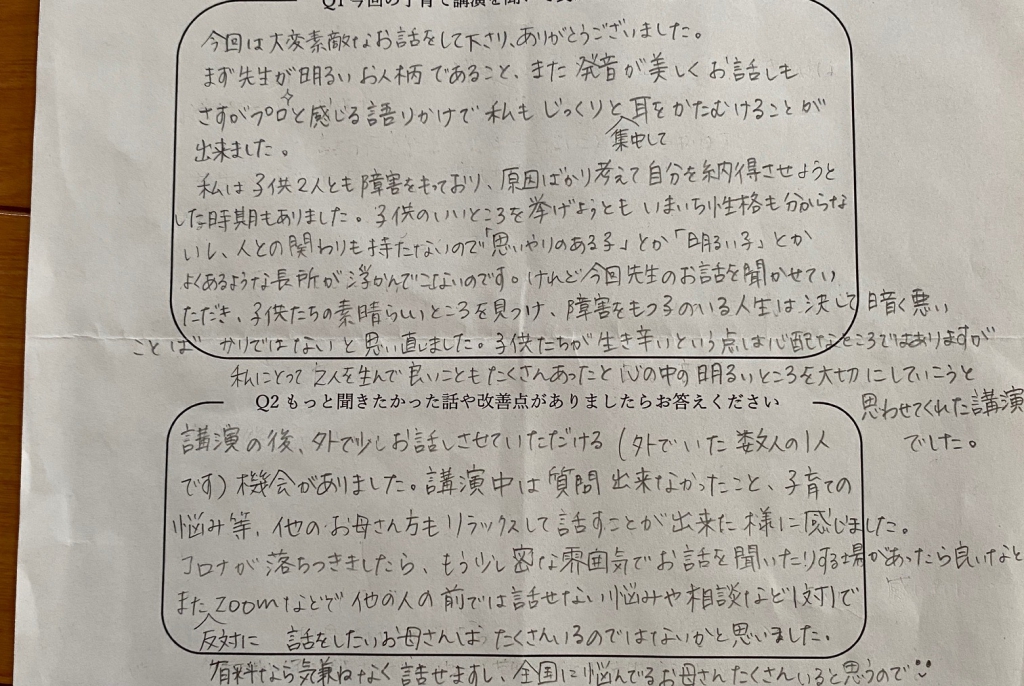 Q1 今回の子育て講演を聞いて
今回は大変素敵なお話をして下さり、ありがとうございました。
まず先生が明るいお人柄であること、また発音が美しくお話しも
さすがプロと感じる語りかけで私もじっくりと集中して耳をかたむけることが
出来ました。
私は子供2人とも障害をもっており、原因ばかり考えて自分を納得させようと
した時期もありました。子供のいいところを挙げようともいまいち性格も分からな
いし、人との関わりも持たないので「思いやりのある子」とか「明るい子」とか
よくあるような長所が浮かんでこないのです。けれど今回先生のお話を聞かせてい
ただき、子供たちの素晴らしいところを見つけ、障害をもつ子のいる人生は決して暗く悪い
ことばかりではないと思い直しました。子供たちが生き辛いという点は心配なところではありますが
私にとって2人を生んで良いこともたくさんあったと心の中の明るいところを大切にしていこうと
思わせてくれた講演
でした。
Q2 もっと聞きたかった話や改善点がありましたらお答えください
講演の後、外で少しお話しさせていただける(外でいた数人の1人
です)機会がありました。講演中は質問出来なかったこと、子育ての
悩み等、他のお母さん方もリラックスして話すことが出来た様に感じました。
コロナが落ちつきましたら、もう少し密な雰囲気でお話を聞いたりする場があったら良いなと
また反対にZoomなどで他の人の前では話せない悩みや相談など1対1で
話をしたいお母さんはたくさんいるのではないかと思いました。
有料なら気兼ねなく話せますし、全国に悩んでるお母さんたくさんいると思うので